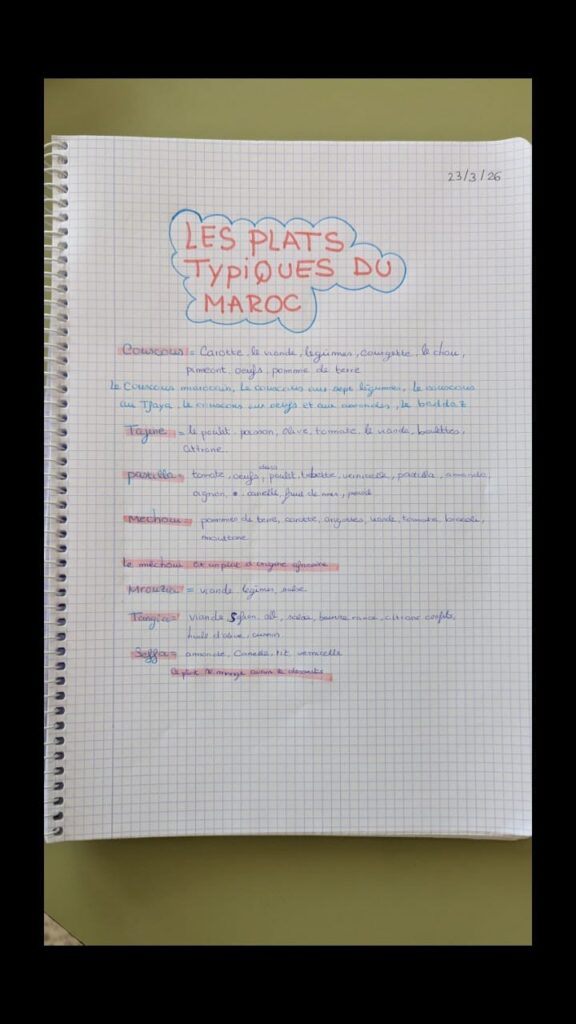 23/3/26
LES PLATS
TYPIQUES DU
MAROC
Couscous = Carotte, le viande, legumes, courgette, le chou,
piment, oeufs, pomme de terre
le Couscous marocain, le couscous aux sept légumes, le couscous
au Tfaya, le couscous aux oeufs et aux amandes, le baddaz
Tajine = le poulet, poisson, olive, tomate, le viande, boulettes,
citrone.
pastilla = tomate, oeufs, poulet, vermicelle, pastilla, amande,
oignon, canelle, fruit de mer,
Mechoui = pommes de terre, carotte, viande, tomate, brocoli,
moustarde
le méchoui est un plat a origine
Mrouzia = viande, legimes,
Tangia = viande, ail, beurre rance, citrone confits,
huile d'olive, cumin
Seffa = amande, Canelle, vermicelle